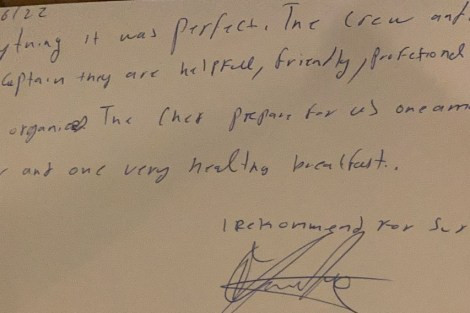 6/22
ything it was perfect. The crew and
captain they are helpfull, friendly, profetional
organiced. The Chef prepare for us one am
and one very healthy breakfast..
I rekommend for su